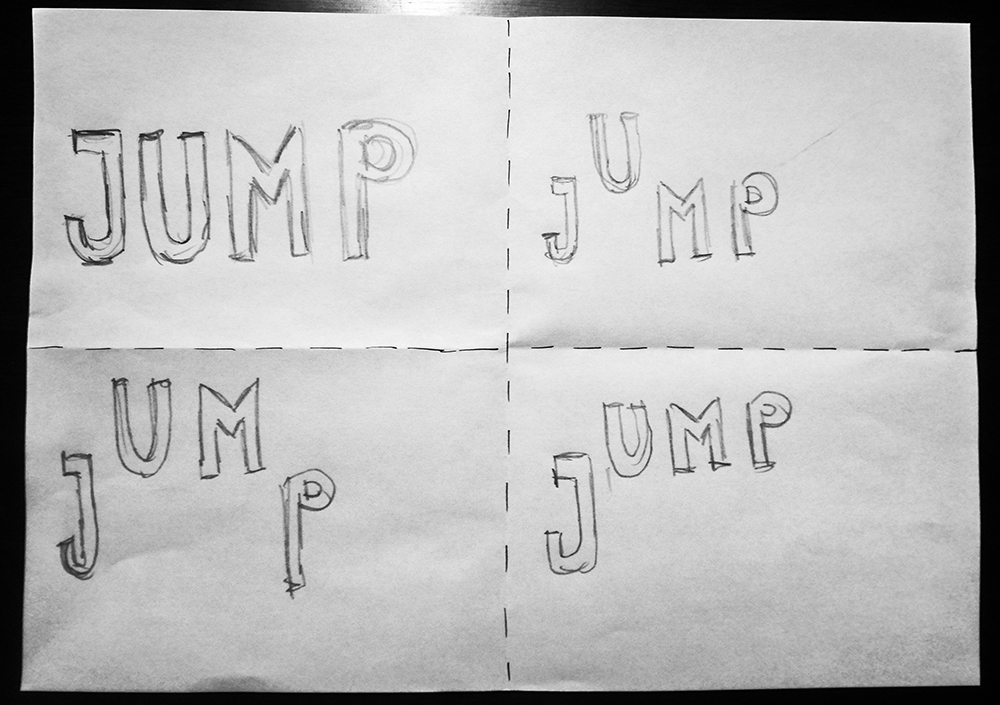 JUMP
JUMP
JUMP
JUMP